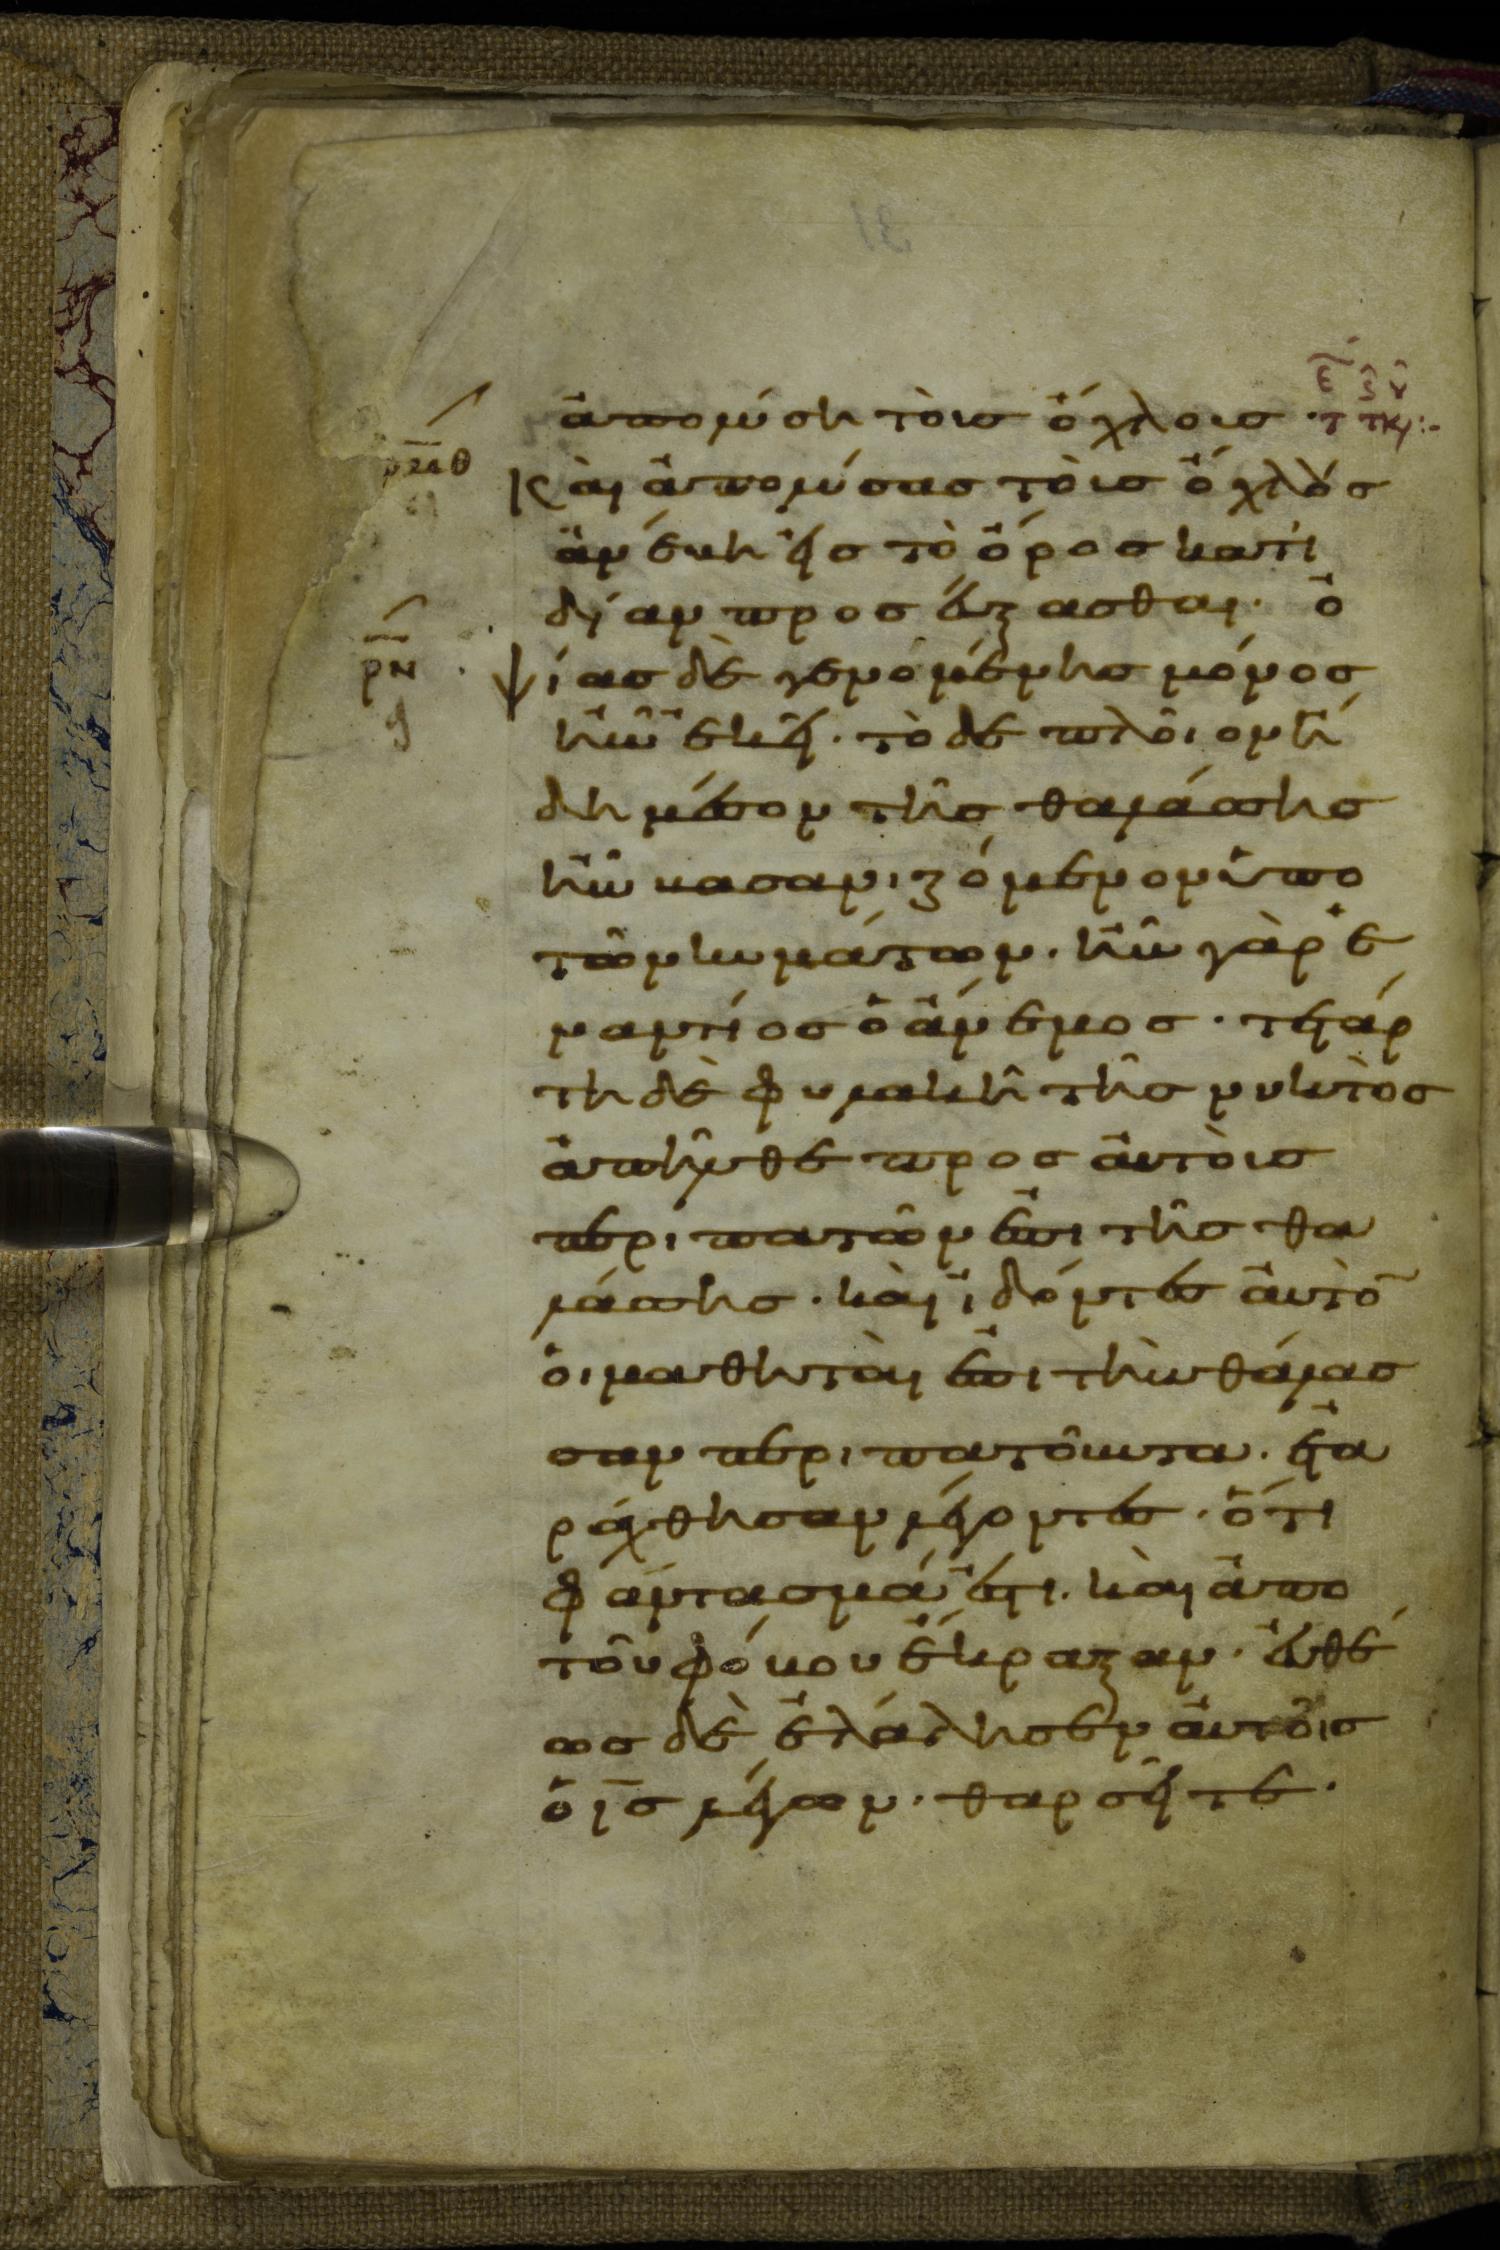 ἀπολύση τοῖσ ὄχλοισ·
ρμθ Καὶ ἀπολύσασ τοῖσ ὄχλοσ
ἀνέβη εἰσ τὸ ὄροσ κατι
δίαν προσεύξασθαι· ὀ
ρν ψίασ δὲ γενομένησ μόνοσ
ἦν ἐκεῖ· τὸ δὲ πλοῖον ἤ
δη μέσον τῆσ θαλάσσησ
ἦν βασανιζόμενον ὑπο
τῶν κυμάτων· ἦν γὰρ ἐ
ναντίοσ ὁ ἄνεμοσ· τετάρ
τη δὲ φυλακῆ τῆσ νυκτὸσ
ἀπῆλθε προσ αὐτοὶσ
περιπατῶν ἐπι τῆσ θα
λάσσησ· καὶ ἰδόντεσ αὐτὸ
̅οἱ μαθηταὶ ἐπι τὴν θάλασ
σαν περιπατοῦντα· ἐτα
ράχθησαν λέγοντεσ· ὅτι
φάντασμά ἐστι· καὶ ἀπο
τοῦ φόβου ἔκραξαν· εὐθέ
ωσ δὲ ἐλάλησεν αὐτοῖσ
ὁ ισ λέγων· θαρσεῖτε·